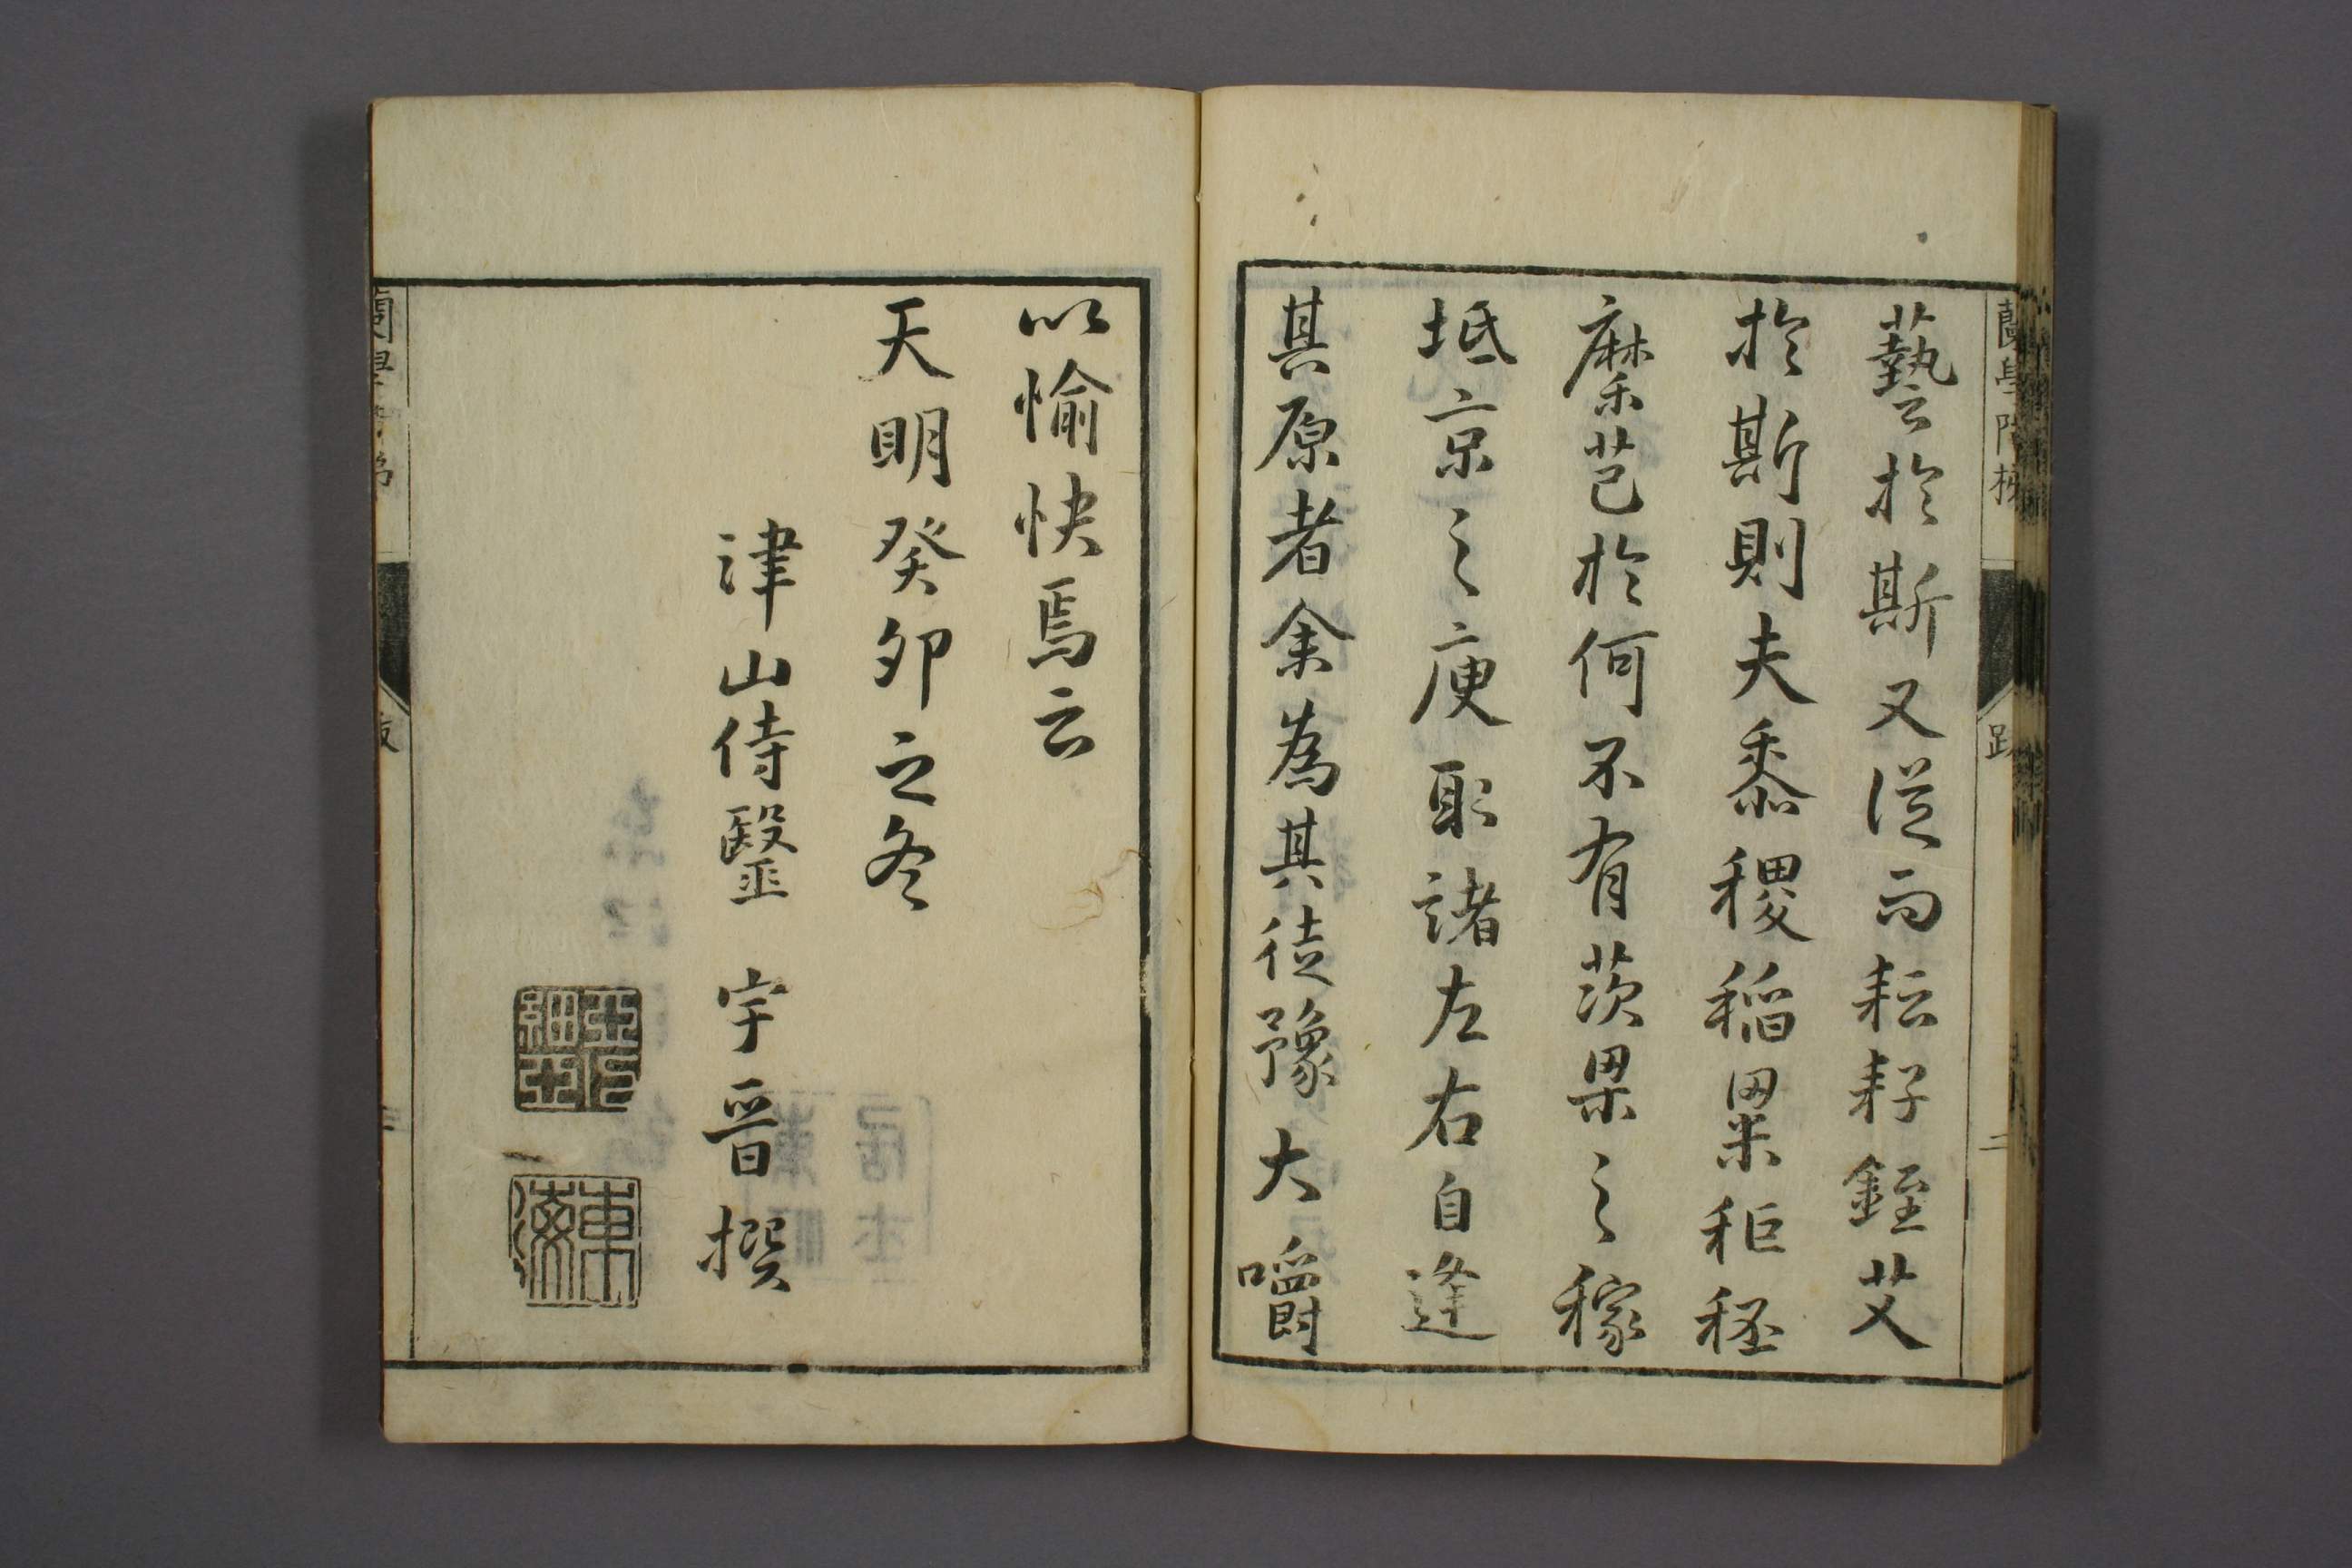 蘭學階梯 跋 二
藝於斯又從而耘耔銍艾
於斯則夫黍稷稻粱秬秠
穈芑於何不有茨梁之稼
坻京之庾取諸左右自逢
其原者余為其徒豫大嚼
以愉快焉云
天明癸卯之冬
津山侍醫 宇晋撰
東